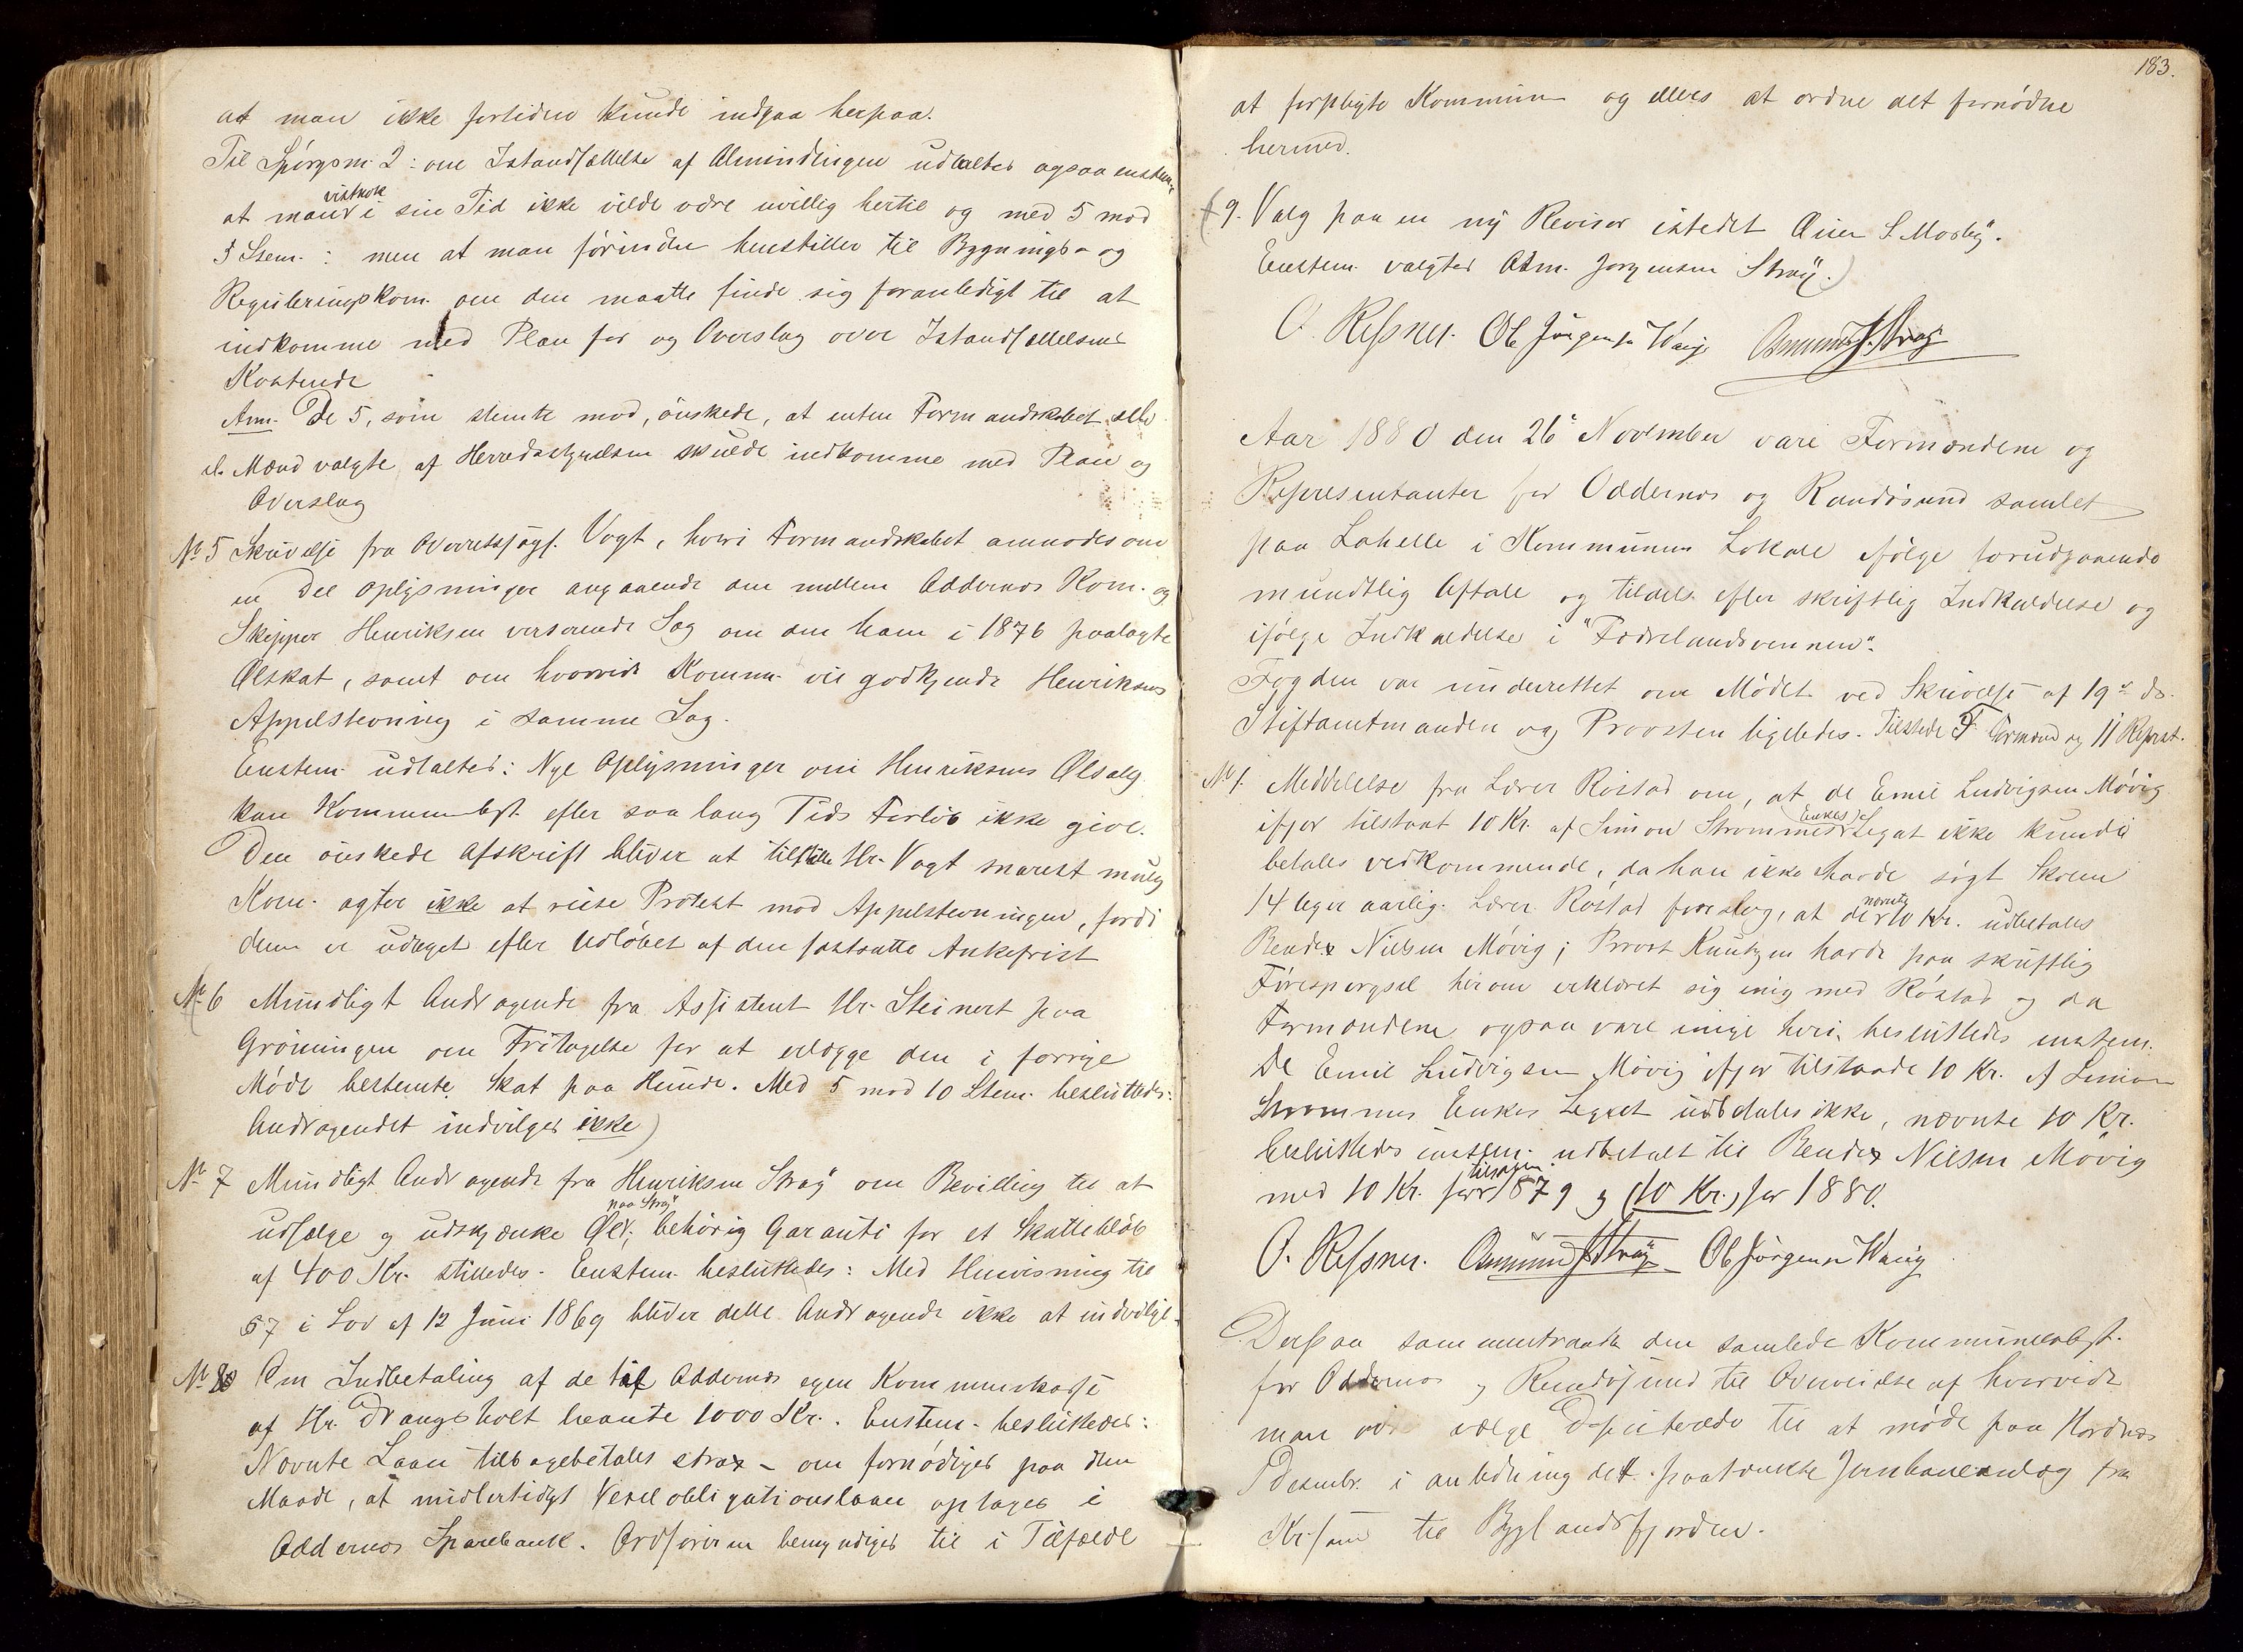 at man ikke fortiden kunde indgaa herpaa.
Til Spörgsm. 2: om Istandsættelse af Almindingen udtaltes ogsaa enstem.
at man vistnok i sin Tid ikke vilde være uvillig hertil og med 5 mod
5 Stem.: men at man förinden henstiller til Bygnings- og
Reguleringskom. om den maatte finde sig foranledigt til at
indkomme med Plan for og Overslag over Istandsættelsens
Kostende
Anm. De 5, som stemte mod, önskede, at enten Formandskabet selv
el. Mænd valgte af Herredsstyrelsen skulde indkomme med Plan og
Overslag
No 5 Skrivelse fra Overretssagf. Vogt, hvori Formandskabet anmodes om
en Del Oplysninger angaaende den mellem Oddernes Kom. og
Skipper Henriksen verserende Sag om den ham i 1876 paalagte
Ølskat, samt om hvorvidt Komm. vil godkjende Henriksens
Appelstevning i samme Sag.
Enstem. udtaltes: Nye Oplysninger om Henriksens Ølsalg
kan Kommunebst. efter saa lang Tids Forlöb ikke give.
Den önskede Afskrift bliver at tilstille Hr. Vogt snarest mulig
Kom. agter ikke at reise Protest mod Appelstevningen, fordi
denn er udtaget efter Udlöbet af den fastsatte Ankefrist
No 6 Mundligt Andragende fra Assistent Hr. Steinert paa
Gröningen om Fritagelse for at erlægge den i forrige
Möde bestemte Skat paa Hunde. Med 5 mod 10 Stem. besluttedes:
Andragendet indvilges ikke)
No 7 Mundligt Andragende fra Henriksen Straÿ om Bevilling til at
udsælge og udskjænke Øl paa Straÿ; behörig Garanti for et Skattebelöb
af 400 Kr. stilledes. Enstem. besluttedes: Med Henvisning til
§ 7 i Lov af 12 Juni 1869 bliver dette Andragende ikke at indvilge.
No 8 Om Indbetaling af de til Oddernes egen Kommunekasse
af Hr. Drangsholt laante 1000 Kr. Enstem. besluttedes:
Nævnte Laan tilbagebetales strax - om fornödiges paa den
Maade, at midlertidigt Vexelobligationslaan optages i
Oddernes Sparebank. Ordföreren bemyndiges til i Tilfælde
183.
at forpligte Kommunen og ellers at ordne det fornödne
hermed.
(9. Valg paa en ny Revisor istedet Einer S. Mosby.
Enstem. valgtes Asm. Jørgensen Straÿ.)
O. Ressner. Ole Jörgensen Vaagi Asmund J. Straÿ
Aar 1880 den 26 November vare Formændene og
Representanter for Oddernes og Randösund samlet
paa Lahelle i Kommunens Lokale ifölge forudgaaende
mundtlig Aftale og tildels efter skriftlig Indkaldelse og
ifölge Indkaldelse i "Fædrelandsvennen".
Fogden var underrettet om Mödet ved Skrivelse af 19de ds.
Stiftamtmanden og Provsten ligeledes. Tilstede 7 Formænd og 11 Repræst.
No 1. Meddelelse fra Lærer Röstad om, at de Emil Ludvigsen Mövig
ifjor tilstaat 10 Kr. af Simon Strømmes Enkes Legat ikke kunde
betales vedkommende, da han ikke havde sögt Skolen
14 Uger aarlig. Lærer Röstad foreslog, at de nævnte 10 Kr. udbetales
Bendix Nielsen Mövig; Provst Knutzen havde paa skriftlig
Förespörgsel herom erklæret sig enig med Röstad og da
Formændene ogsaa vare enige heri, besluttedes enstem.
De Emil Ludvigsen Mövig ifjor tilstaaede 10 Kr. af Simon
Strømmes Enkes Legat udbetales ikke, nævnte 10 Kr.
besluttedes enstem. udbetalt til Bendix Nielsen Mövig
med 10 Kr. for 1879 og (10 Kr.) for 1880.
O. Ressner. Asmund J. Straÿ Ole Jörgensen Vaagi
Derpaa sammentraadte den samlede Kommunebst.
for Oddernes og Randösund til Overveielse af hvorvidt
man vil vælge Deputerede til at möde paa Hordnes
Desembr. i anledning det paatænkte Jernbaneanlæg fra
Kr.sand til Byglandsfjorden.